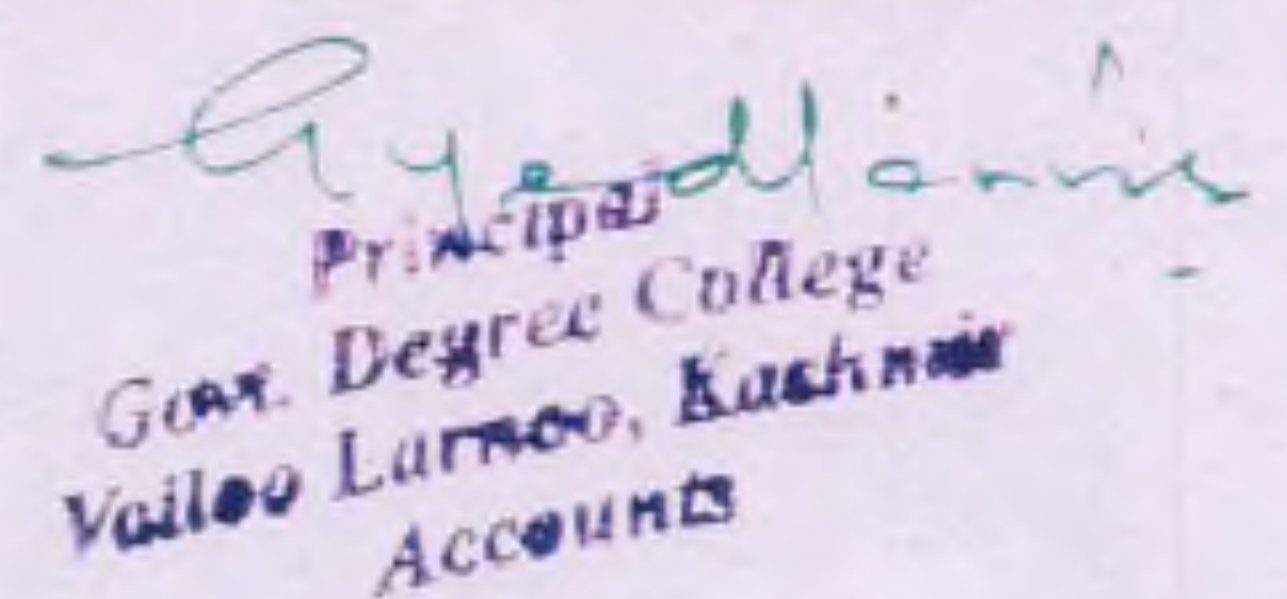 Principal
Govt. Degree College
Vailoo Larnoo, Kashmir
Accounts